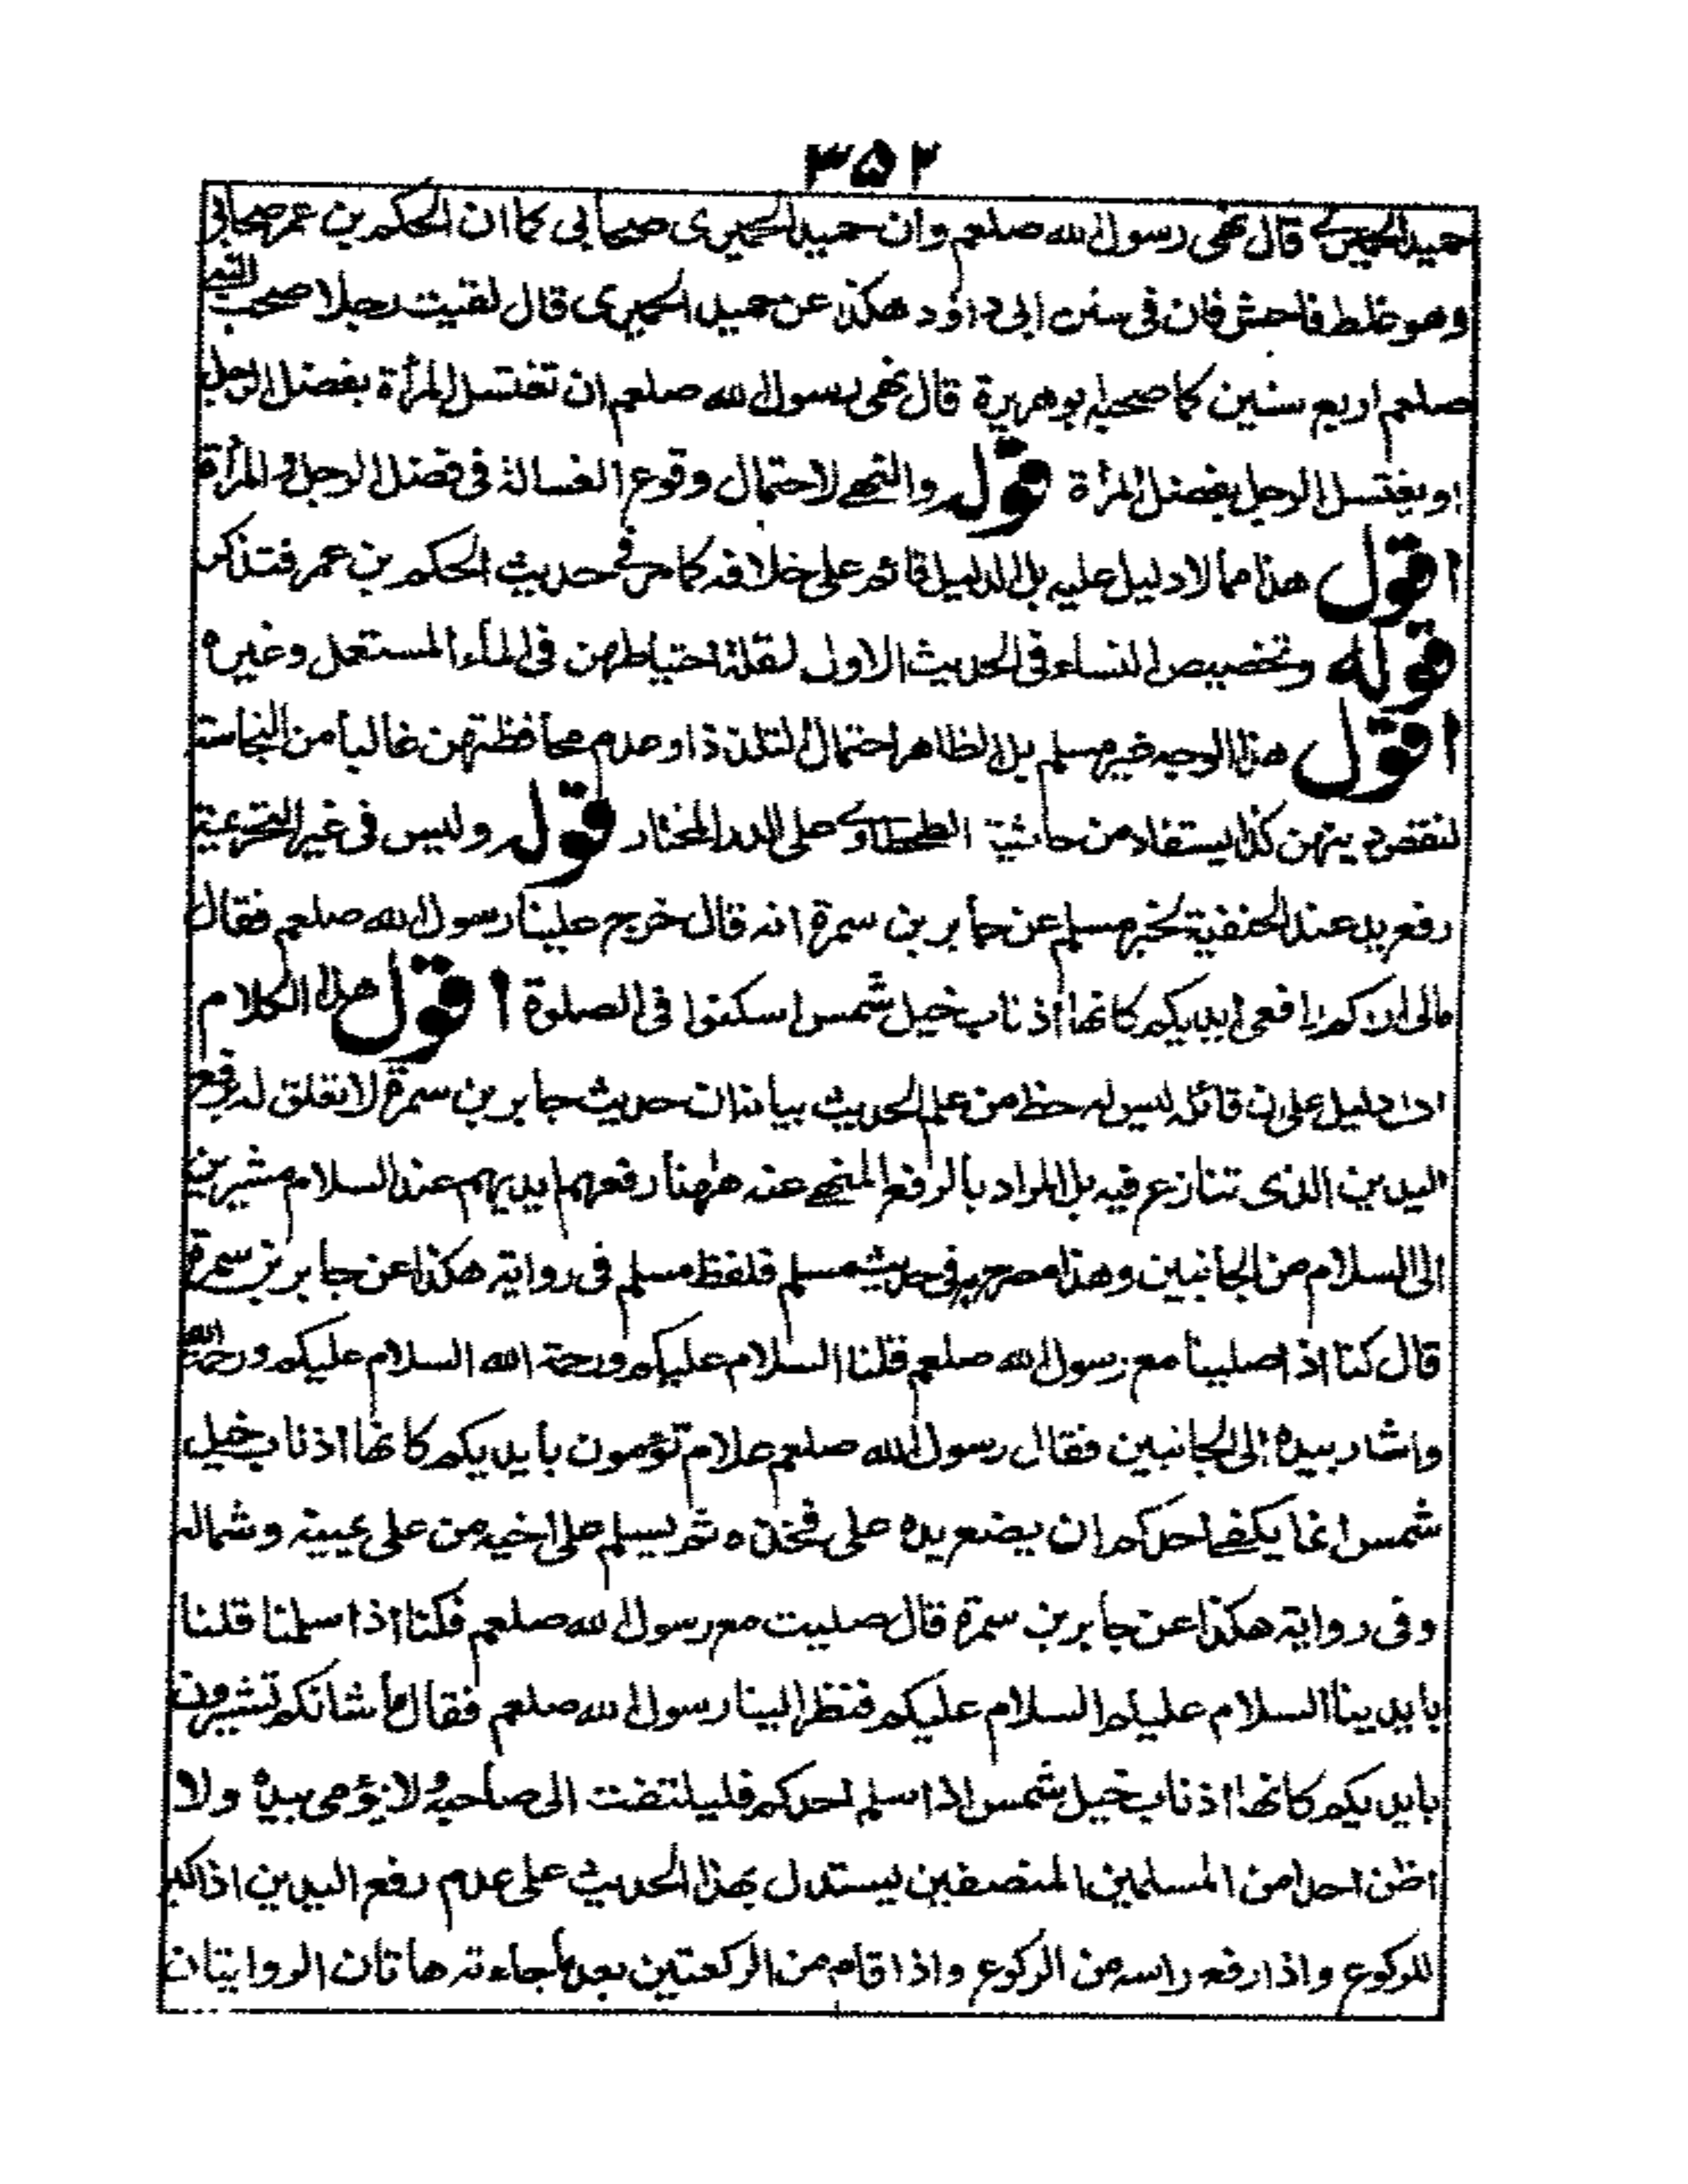 ٣٥٢
حميد الحميرى قال نهى رسول الله صلعم وان حميد الحميرى صحابى كما ان الحكم بن عمر صحابى
وهو غلط فاحش فان فى سنن ابى داؤد هكذا عن حميد الحميرى قال لقيت رجلا صحب النبى
صلعم اربع سنين كما صحبه ابو هريرة قال نهى رسول الله صلعم ان تغتسل المرأة بفضل الرجل
او يغتسل الرجل بفضل المرأة قوله والنهى لاحتمال وقوع الغسالة فى فضل الرجل والمرأة
اقول هذا مما لا دليل عليه بل الدليل قائم على خلافه كما مر فى حديث الحكم بن عمر فتذكر
قوله وتخصيص النساء فى الحديث الاول لقلة احتياطهن فى الماء المستعمل وغيره
اقول هذا الوجه غير مسلم بل الظاهر احتمال التلذذ او عدم محافظتهن غالبا من النجاسة
لنقض دينهن كذا يستفاد من حاشية الطحطاوى على الدر المختار قوله وليس فى غير التحريمة
رفع يد عند الحنفية لخبر مسلم عن جابر بن سمرة انه قال خرج علينا رسول الله صلعم فقال
مالى اراكم رافعى ايديكم كانها اذناب خيل شمس اسكنوا فى الصلوة اقول هذا الكلام
ادل دليل على ان قائله ليس له حظ من علم الحديث بيانه ان حديث جابر بن سمرة لا تعلق له برفع
اليدين الذى تنازع فيه بل المراد بالرفع المنهى عنه ههنا رفعهم ايديهم عند السلام مشيرين
الى السلام من الجانبين وهذا مصرح به فى حديث مسلم فلفظ مسلم فى رواية هكذا عن جابر بن سمرة
قال كنا اذا صلينا مع رسول الله صلعم قلنا السلام عليكم ورحمة الله السلام عليكم ورحمة الله
واشار بيده الى الجانبين فقال رسول الله صلعم علام تؤمون بأيديكم كانها اذناب خيل
شمس انما يكفى احدكم ان يضع يده على فخذه ثم يسلم على اخيه من على يمينه وشماله
وفى رواية هكذا عن جابر بن سمرة قال صليت مع رسول الله صلعم فكنا اذا سلمنا قلنا
بايدينا السلام عليكم السلام عليكم فنظر الينا رسول الله صلعم فقال ما شانكم تشيرون
بايديكم كانها اذناب خيل شمس اذا سلم احدكم فليلتفت الى صاحبه ولا يؤمى بيده ولا
اظن احدا من المسلمين المنصفين يستدل بهذا الحديث على عدم رفع اليدين اذا كبر
للركوع واذا رفع راسه من الركوع واذا قام من الركعتين بعد ما جاءته هاتان الروايتان